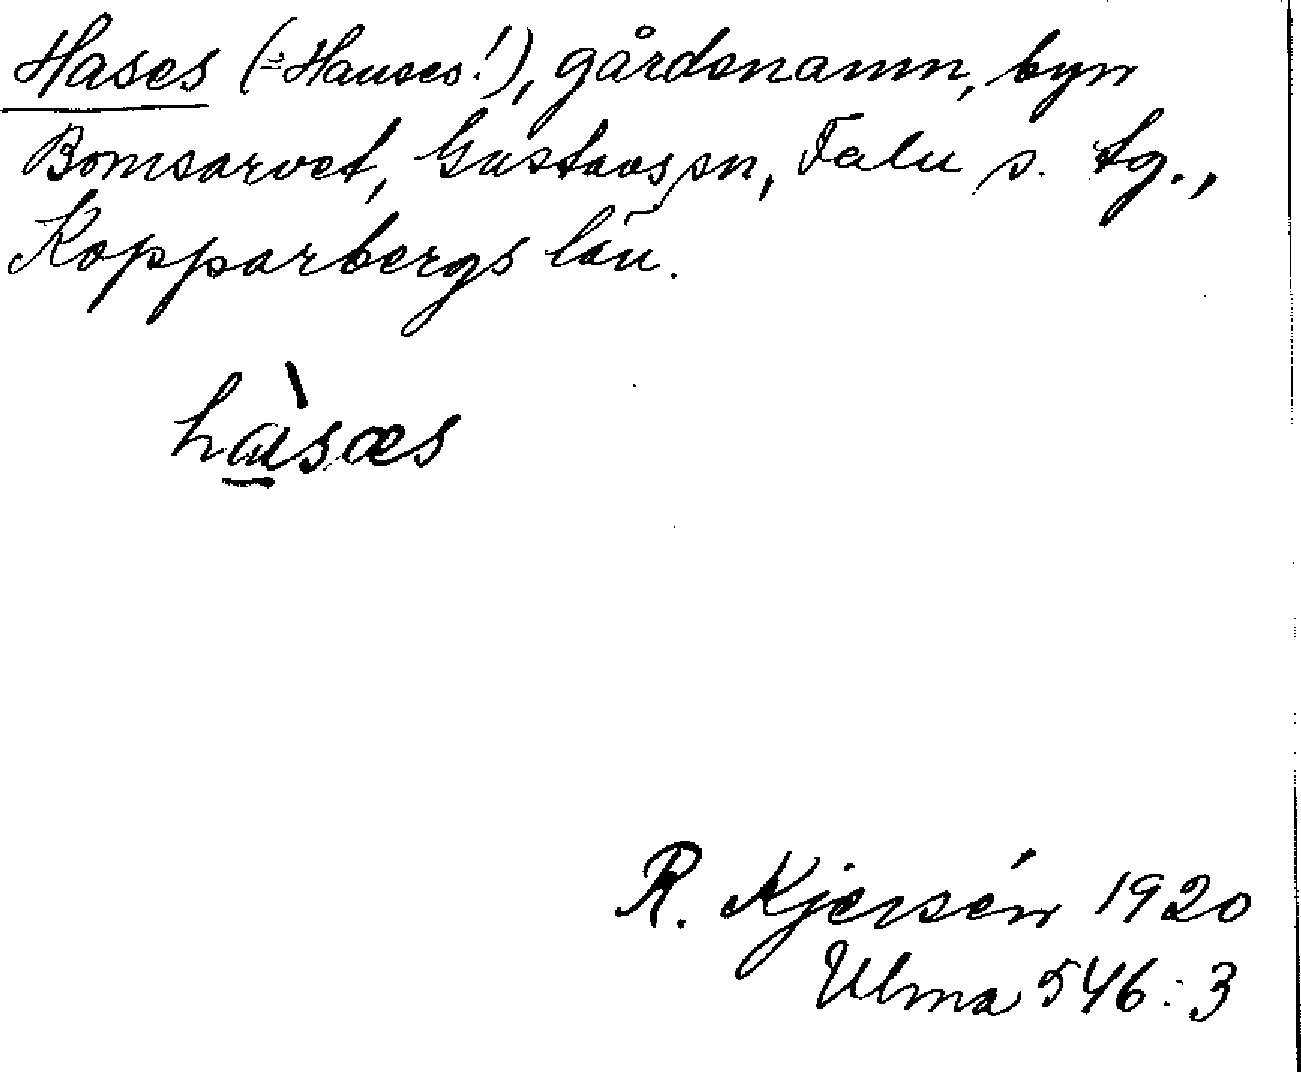 Hases (= Hanses!), gårdsnamn, byn
Bomsarvet, Gustavs sn, Falu s. tg.,
Kopparbergs län.
hàsæs
R. Kjersén 1920
Ulma 546:3